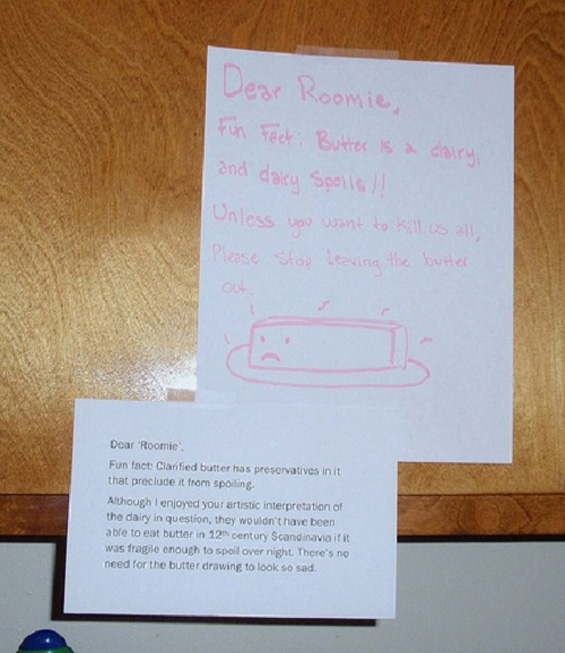 Dear Roomie,
Fun Fact: Butter is a dairy,
and dairy Spoils!!
Unless you want to kill us all,
Please stop leaving the butter
out.
Dear 'Roomie',
Fun fact: Clarified butter has preservatives in it
that preclude it from spoiling.
Although I enjoyed your artistic interpretation of
the dairy in question, they wouldn't have been
able to eat butter in 12th century Scandinavia if it
was fragile enough to spoil over night. There's no
need for the butter drawing to look so sad.